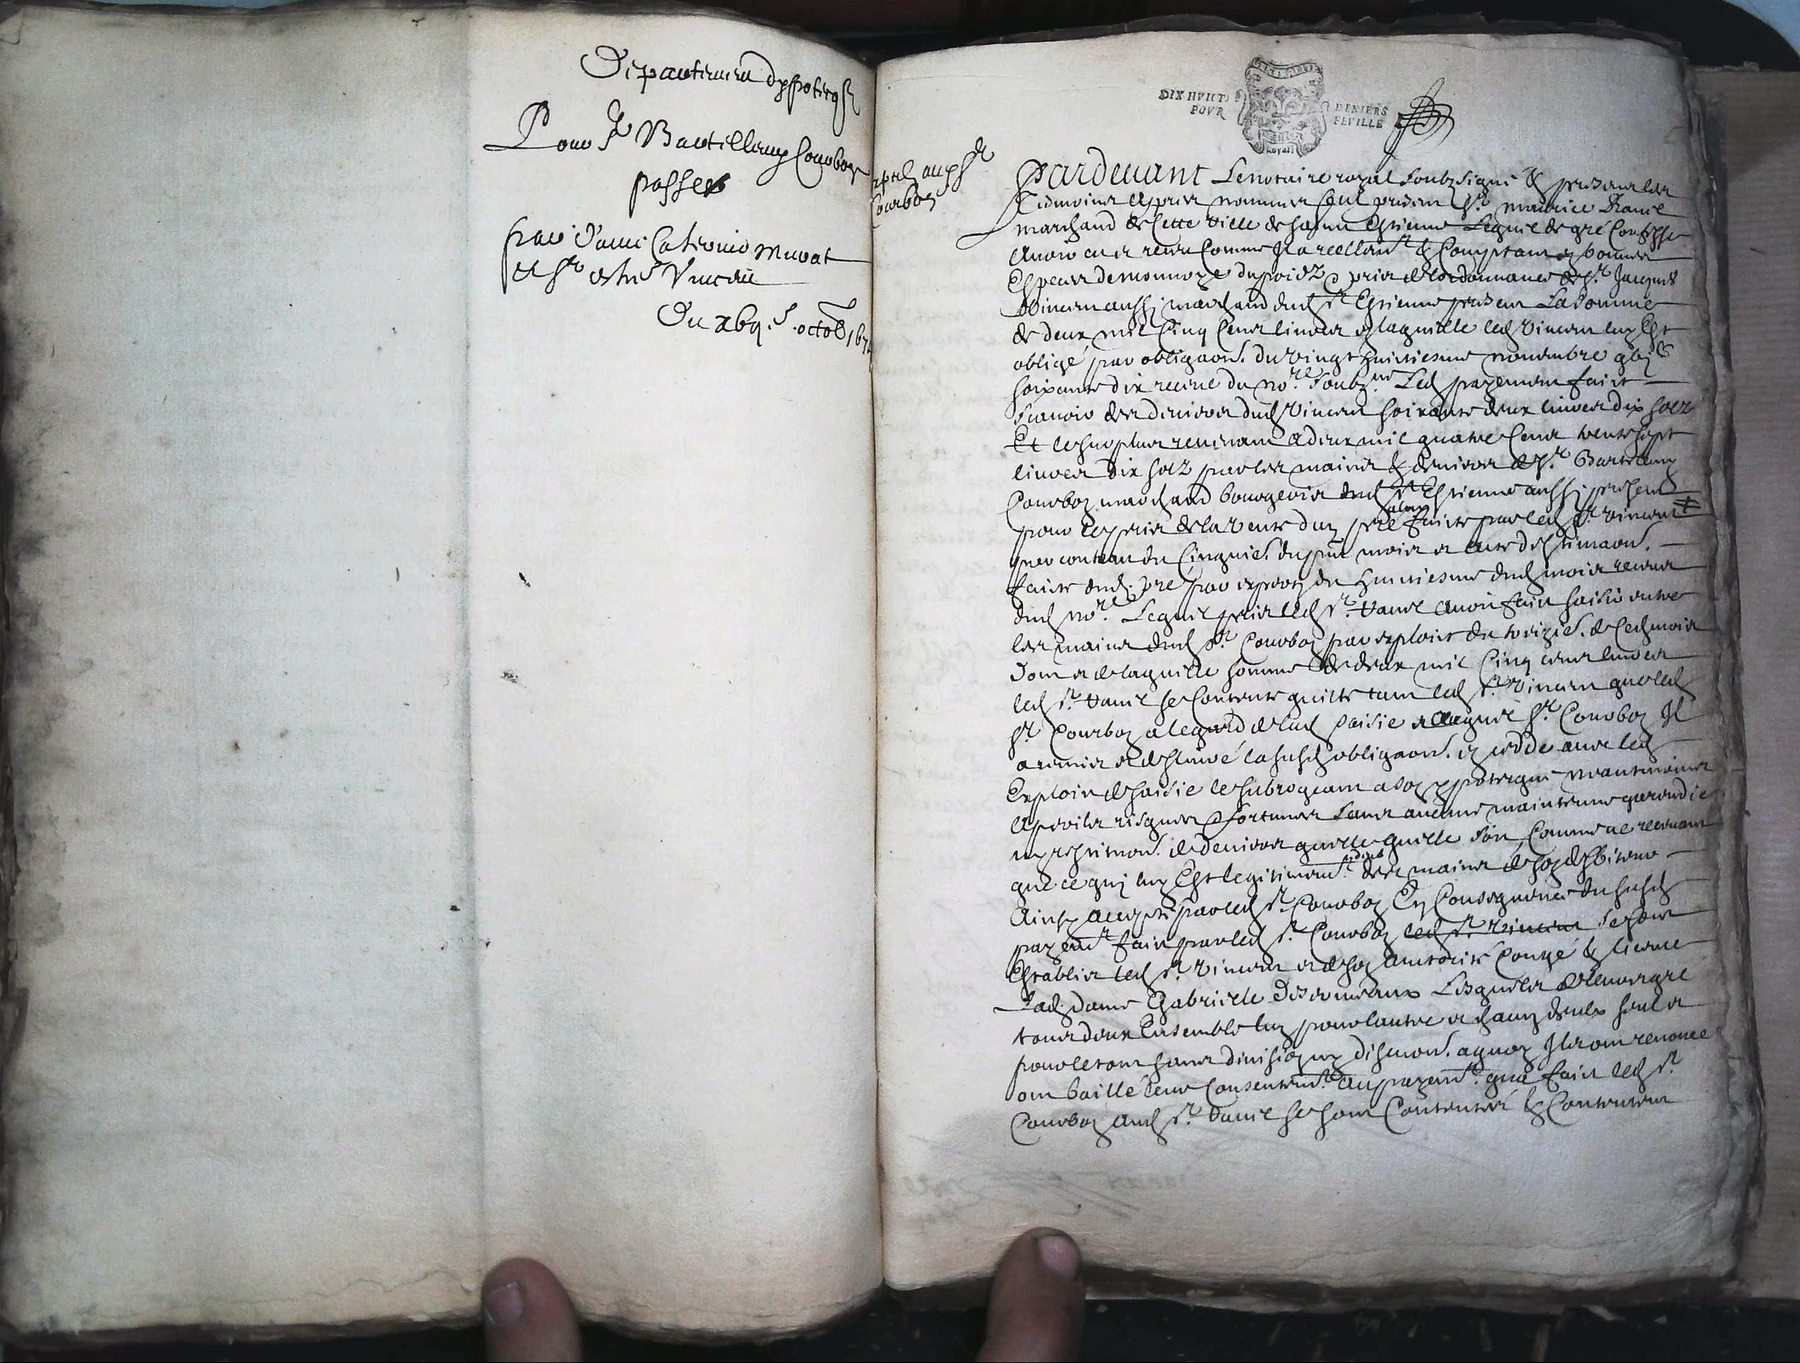 Departement dhipoteque
Pour Sr Bartellemy Courbon
passée
par dame Catherine Murat
et Sr estne Vincent
Du xbij.e octob. 167
expel. aud Sr
Courbon
DIX HVIT DENIERS
POVR FEVILLE
Pardevant Le notaire royal soubzsigné & presens les
tesmoins apres nommes feut present Sr. Maurice
marchand de cette ville de Saint Estienne Lequel de gre confesse
avoir eu et receu comme reellemt. & comptant en bonnes
Especes de monnoye du poidz & prix de lordonnance de Sr. Jacques
Vincent aussy marchand dud St Estienne present La somme
de deux mil cinq cens livres en laquelle led Vincent luy Est
obligé par obligaon. du vingt huictiesme novembre
soixante dix receue du nore. soubzne. Led payement faict
scavoir des deniers dud Vincent soixante deux livres dix solz
Et le surplus revenant a deux mil quatre cens trente sept
livres dix solz par les mains & deniers de Sr. Bartelemy
Courbon marchand bourgeois dud St Estienne aussy present
pour le prix de la vente dun pré a luy faicte par led Sr. Vincent
par contract du cinquies. du pnt mois et acte destimaon.
faicte dud. pre par expertz du huictiesme dud mois receus
dud nore. Lequel prix led Sr. avoit faict saisir entre
les mains dud Sr. Courbon par exploict du treizies. de ced mois
Dont et de laquelle somme de deux mil cinq cens livres
led Sr. se contente quicte tant led Sr. Vincent que led
Sr. Courbon a legard de lad saisie & auquel Sr. Courbon Il
a remis et delivré la susd obligaon. et cedde avec led
Exploict de saisie le subrogeant a son hypoteque neantmoins
a perilz risques & fortunes sans aucune maintenue garendie
ny restitution. de deniers quelle quelle soit, comme ne recevant
que ce quy luy Est legitimemt. deub des mains de son debiteur
Ainsy accepté par led Sr. Courbon En consequence du susd
payemt. faict par led Sr. Courbon led Sr. Vincent se sont
Establis led Sr. Vincent et de son autorité congé & licence
Lad. dame Gabrielle Lesquels de leur gre
tous deux Ensemble lun pour lautre et chacun deulx seul et
pour le tout sans division ny discution. a quoy Ilz ont renoncé
ont baillé leur consentemt. au payemt. qua faict led Sr.
Courbon aud Sr. se sont contentés & contentent